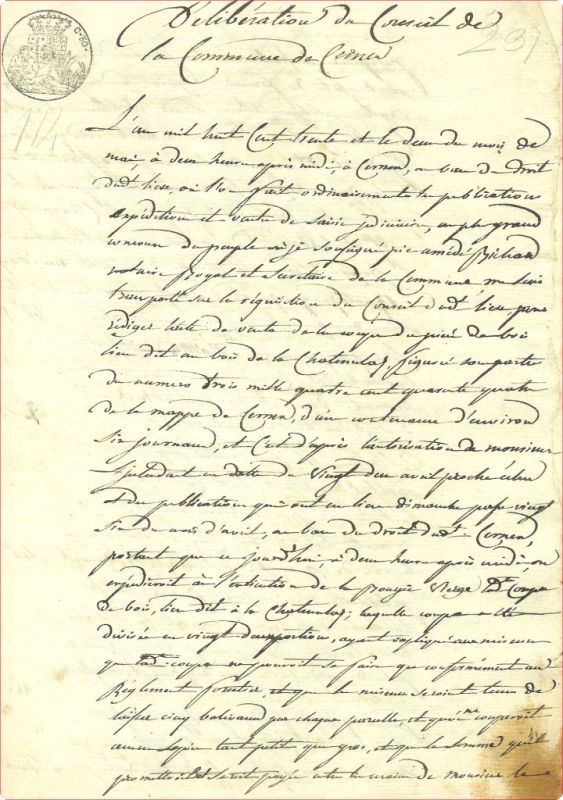 Délibération du Conseil de
237
la Commune de Cernex
114
L'an mil huit Cent trente et le deux du mois de
mai, à deux heure après midi, à Cernex, au banc du droit
dud.t lieu, où l'on fait ordinairement les publications
expéditions et vente de saisie judiciaire, au plus grand
concour du peuple, je soussigné
notaire Royal et Secretaire de la Commune me suis
transporté sur la réquisition du Conseil dud.t lieu pour
rédiger l'acte de vente de la coupe du pied de bois
lieu dit au bois de la Chatenelaz, figuré sous partie
du numero trois mille quatre cent quarante quatre
de la mappe de Cernex, d'une contenance d'environ
Six journaux, et C'est d'après l'autorisation de monsieur
l'jntendant en datte du Vingt deux avril proche échu
et des publications qui ont eu lieu dimanche passé vingt
du mois d'avril, au banc du droit dud.t Cernex,
portant que ce jourd'hui, à deux heure après midi, on
à l'extinction de la Bougie Vierge lad.t Coupe
de bois, lieu dit à la Chatenelaz; laquelle coupe a été
divisée en vingt portions, ayant expliqué aux miseurs
que lad.t coupe ne pouvait se faire que conformément au
Réglement forestier, et que les miseurs seroient tenus de
laisser cinq baliveaux par chaque parcelle, et qu'ils ne couperoit
aucun sapin tant petit que gros, et que la somme qu'il
promettroit seroit payée entre les mains de monsieur le